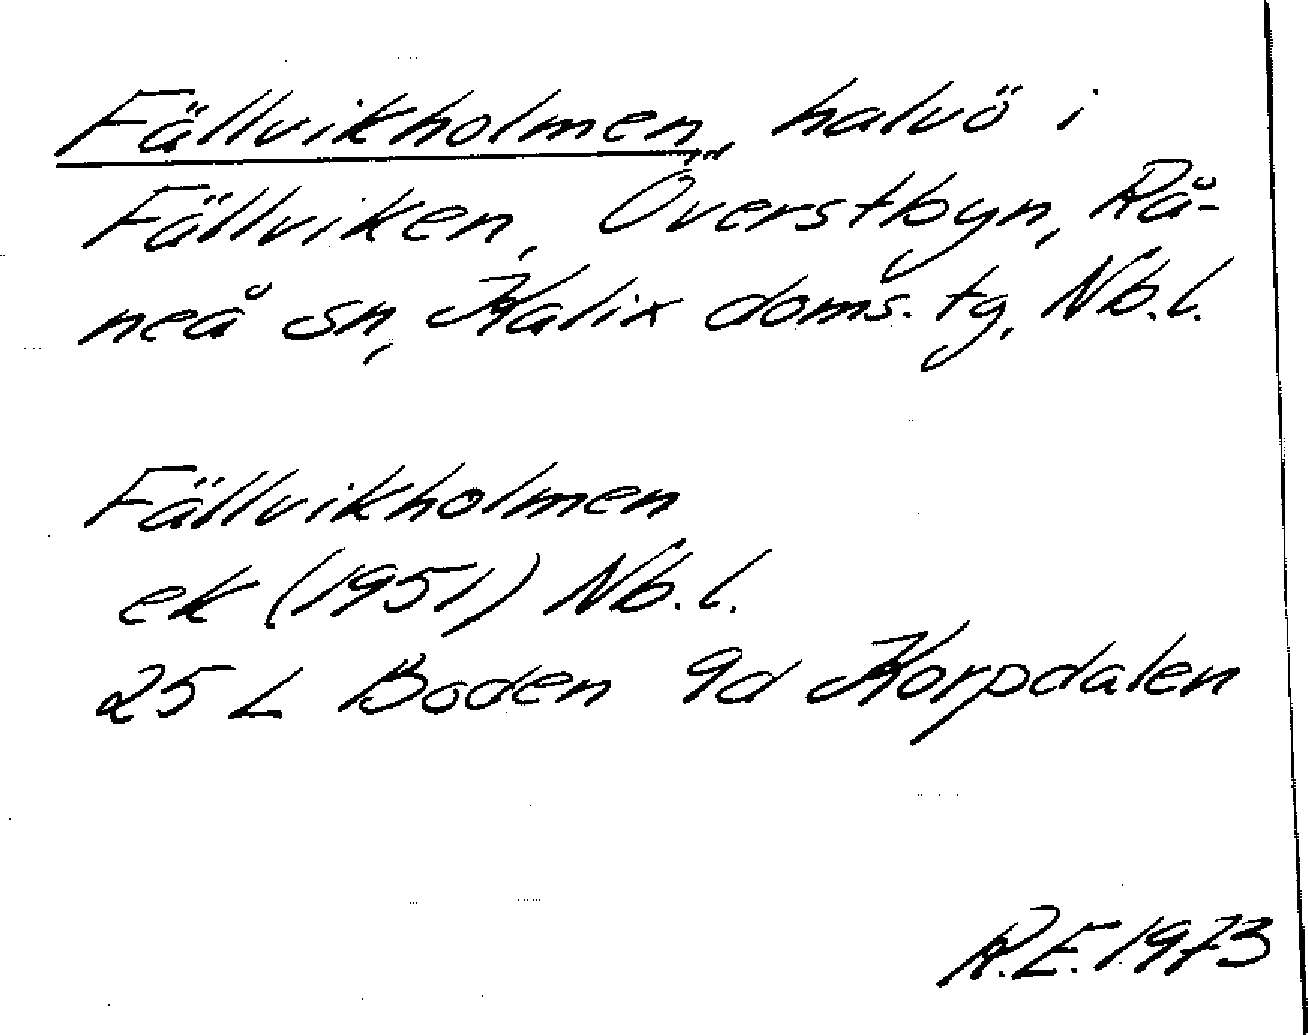 Fällvikholmen, halvö i
Fällviken, Överstbyn, Rå-
neå sn, Kalix doms. tg, Nb.l.
Fällvikholmen
ek (1951) Nb.l.
25 L Boden 9d Korpdalen
R.E. 1973